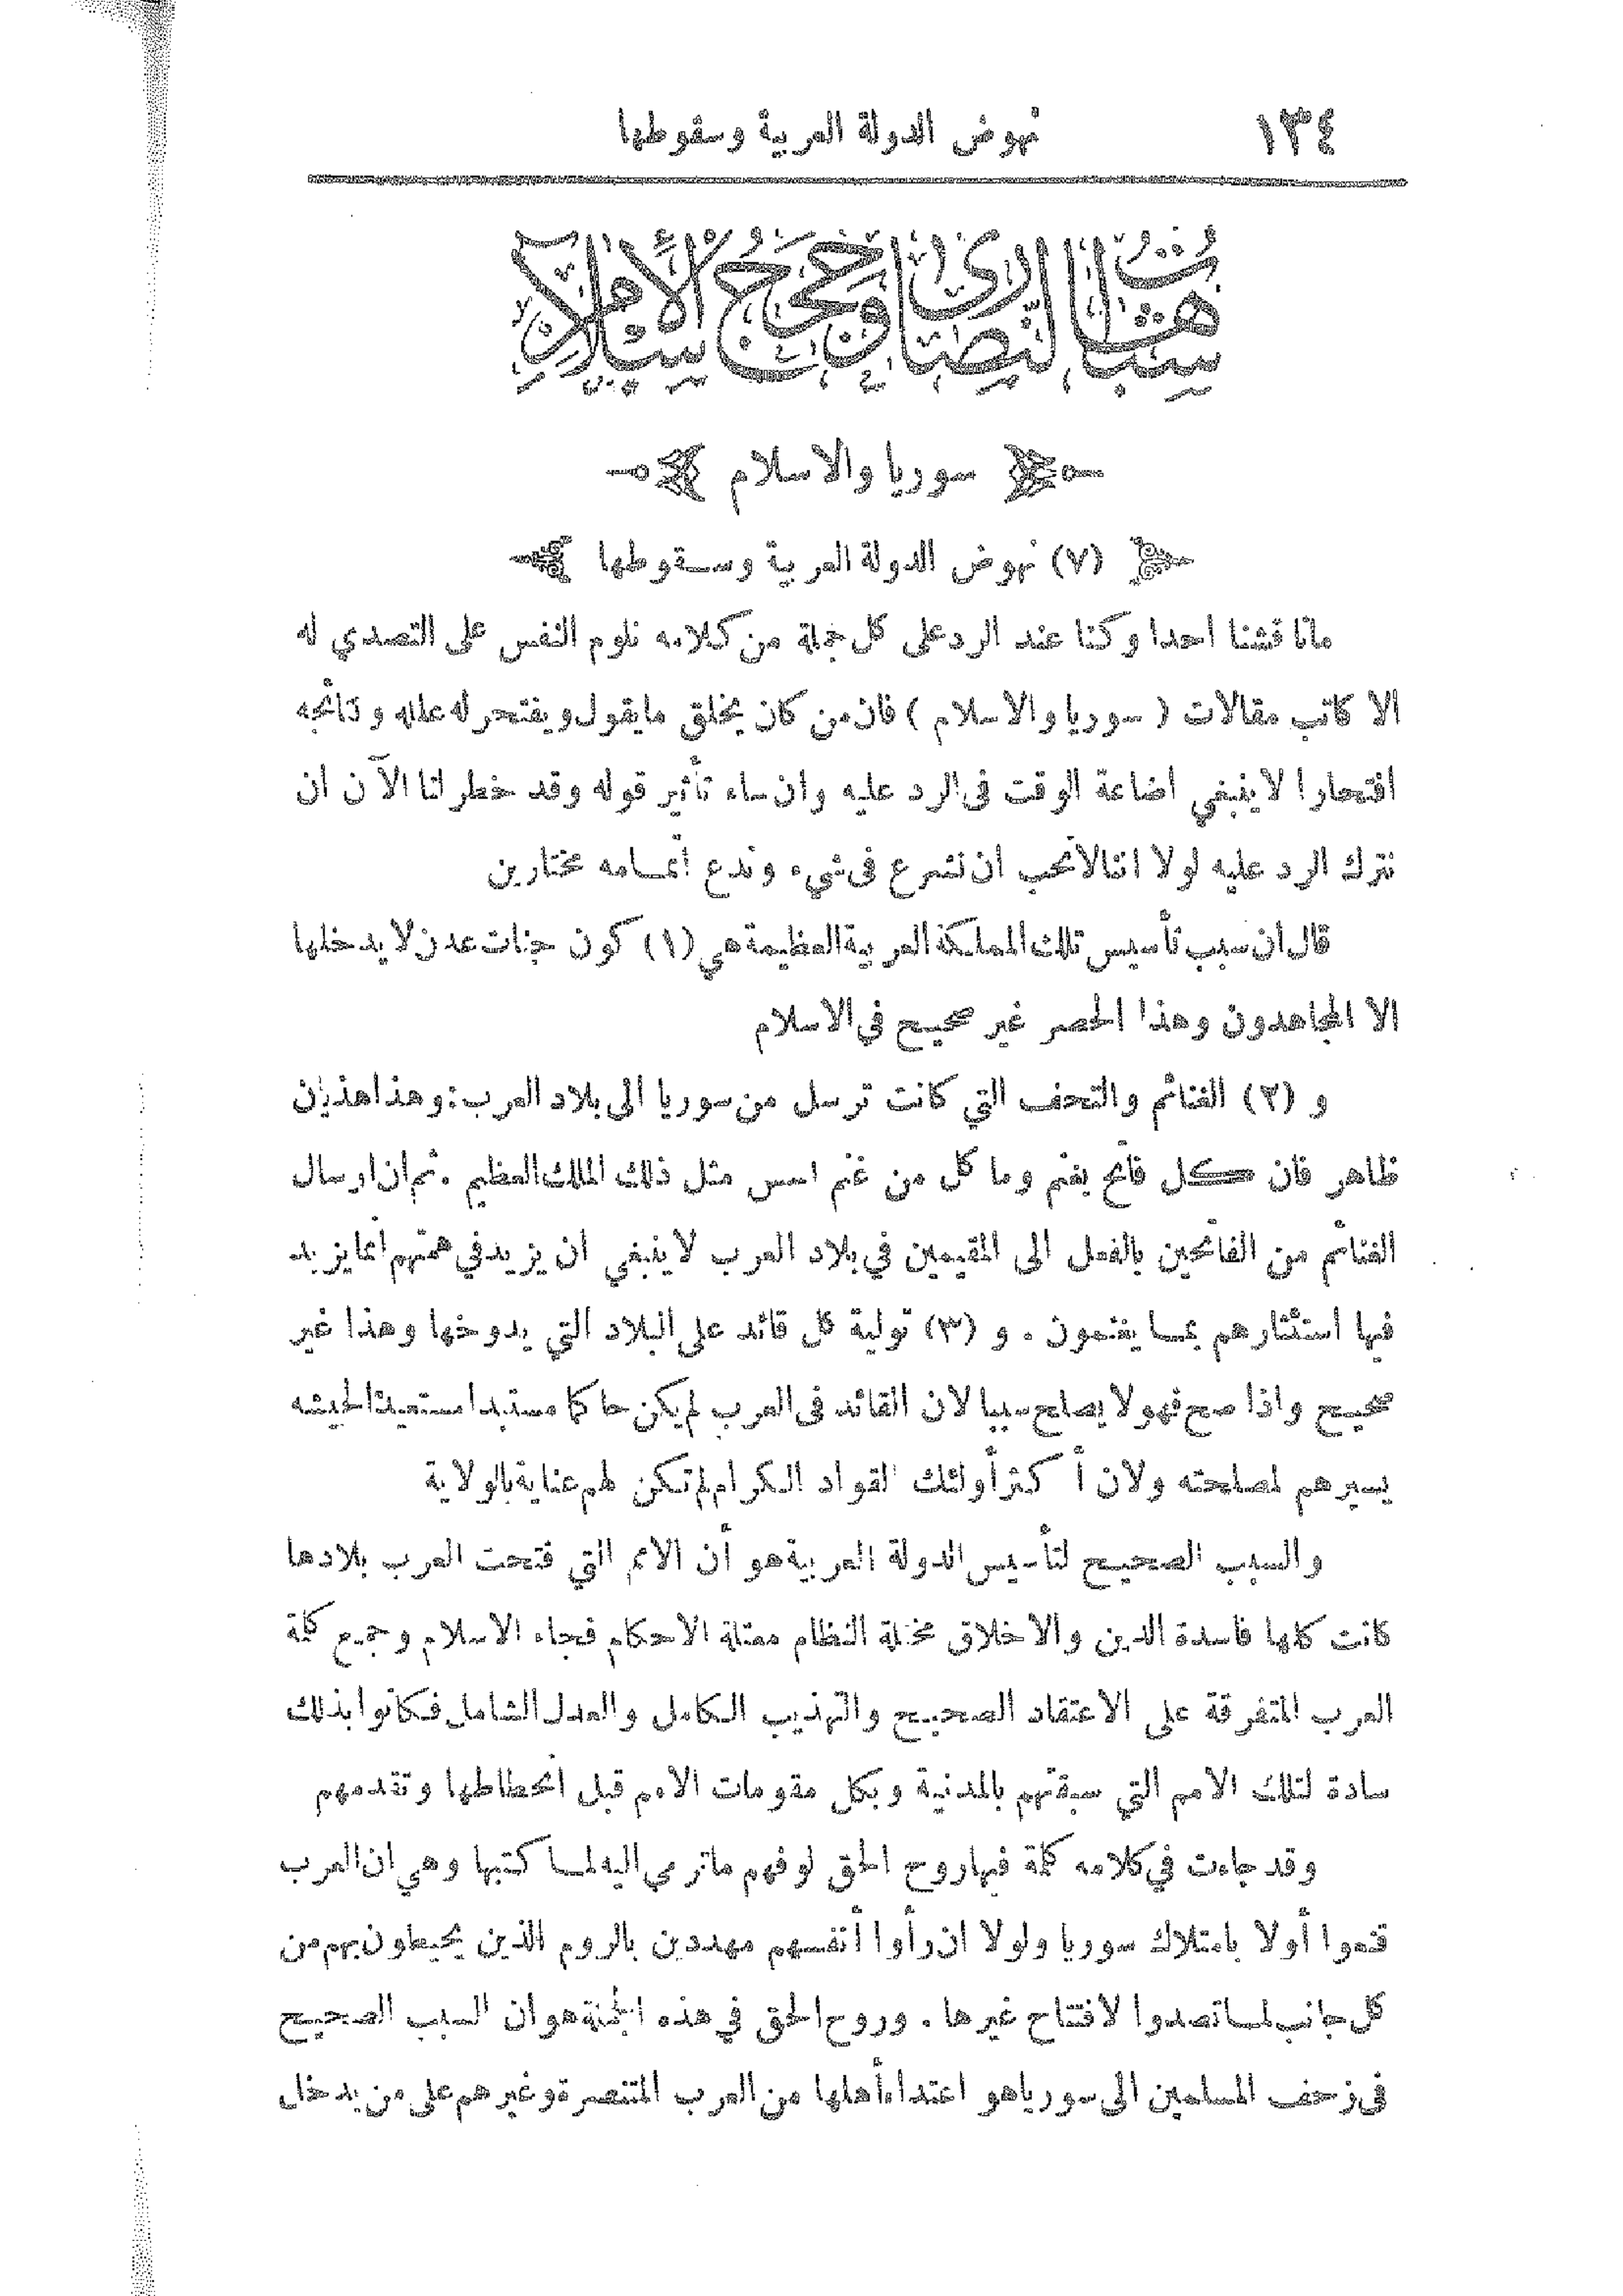 ١٣٤
نهوض الدولة العربية وسقوطها
شبهات النصارى وحجج الإسلام
سوريا والاسلام
(٧) نهوض الدولة العربية وسقوطها
ماناقشنا احدا وكنا عند الرد على كل جملة من كلامه نلوم النفس على التصدي له
الا كاتب مقالات ( سوريا والاسلام ) فان من كان يخلق ما يقول ويفتحر له علله ونتائجه
افتحارا لا ينبغي اضاعة الوقت في الرد عليه وان ساء تأثير قوله وقد خطر لنا الآن ان
نترك الرد عليه لولا اننا لانحب ان نشرع في شيء وندع أتمامه مختارين
قال ان سبب تأسيس تلك المملكة العربية العظيمة هي (١) كون جنات عدن لا يدخلها
الا المجاهدون وهذا الحصر غير صحيح في الاسلام
و (٢) الغنائم والتحف التي كانت ترسل من سوريا الى بلاد العرب: وهذا هذيان
ظاهر فان كل فاتح يغنم وما كل من غنم اسس مثل ذلك الملك العظيم . ثم ان ارسال
الغنائم من الفاتحين بالفعل الى المقيمين في بلاد العرب لا ينبغي ان يزيد في همتهم انما يزيد
فيها استئثارهم بما يغنمون . و (٣) تولية كل قائد على البلاد التي يدوخها وهذا غير
صحيح واذا صح فهو لا يصلح سببا لان القائد في العرب لم يكن حاكما مستبدا مستعبدا لجيشه
يسيرهم لمصلحته ولان أ كثر أولئك القواد الكرام لم تكن لهم عناية بالولاية
والسبب الصحيح لتأسيس الدولة العربية هو أن الامم التي فتحت العرب بلادها
كانت كلها فاسدة الدين والاخلاق مختلة النظام معتلة الاحكام فجاء الاسلام وجميع كلمة
العرب المتفرقة على الاعتقاد الصحيح والتهذيب الكامل والعدل الشامل فكانوا بذلك
سادة لتلك الامم التي سبقتهم بالمدنية وبكل مقومات الامم قبل انحطاطها وتقدمهم
وقد جاءت في كلامه كلمة فيها روح الحق لو فهم ما ترمي اليه لما كتبها وهي ان العرب
قنعوا أولا بامتلاك سوريا ولولا ان رأوا أنفسهم مهددين بالروم الذين يحيطون بهم من
كل جانب لما تصدوا لافتتاح غيرها . وروح الحق في هذه الجملة هو ان السبب الصحيح
في زحف المسلمين الى سوريا هو اعتداء أهلها من العرب المتنصرة وغيرهم على من يدخل